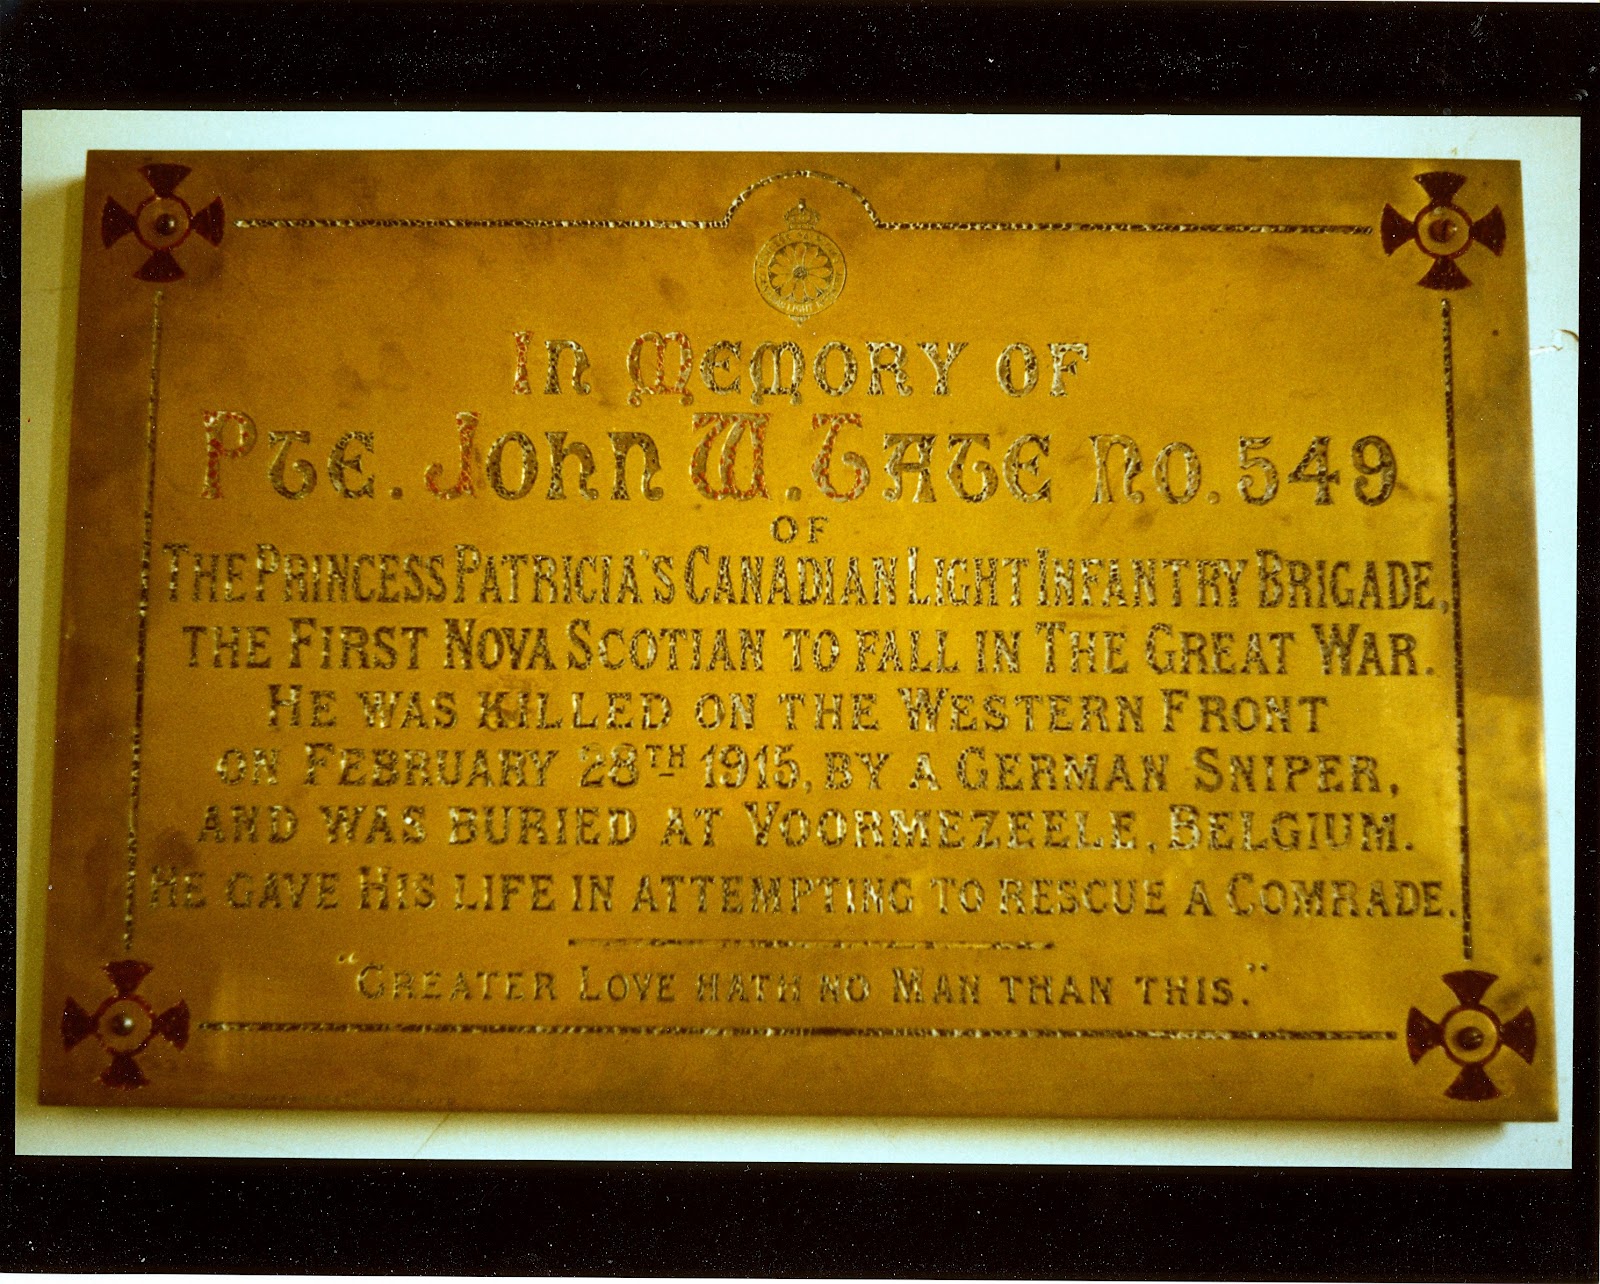 In Memory of
Pte. John W. Tate No. 549
OF
THE PRINCESS PATRICIA'S CANADIAN LIGHT INFANTRY BRIGADE,
THE FIRST NOVA SCOTIAN TO FALL IN THE GREAT WAR.
HE WAS KILLED ON THE WESTERN FRONT
ON FEBRUARY 28TH 1915, BY A GERMAN SNIPER,
AND WAS BURIED AT VOORMEZEELE, BELGIUM.
HE GAVE HIS LIFE IN ATTEMPTING TO RESCUE A COMRADE.
"GREATER LOVE HATH NO MAN THAN THIS."